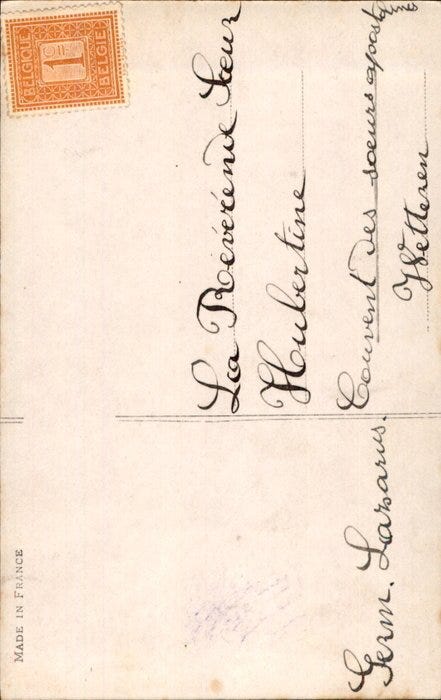 BELGIQUE
1 CME
BELGIË
La Révérende Sœur
Hubertine
Couvent des sœurs apost
Wetteren
Germ. Lazarus.
MADE IN FRANCE